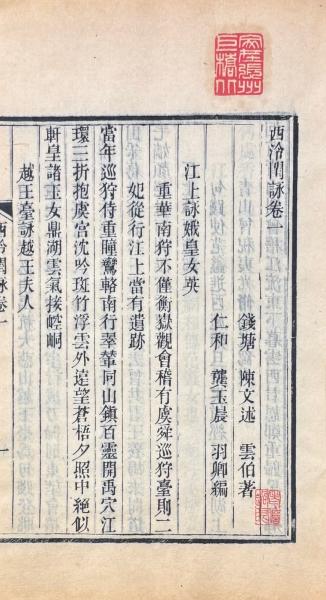 西泠閨詠卷一
錢塘 陳文述 雲伯著
仁和 龔玉晨 羽卿編
江上詠娥皇女英
重華南狩不僅衡嶽觀會稽有虞舜巡狩臺則二
妃從行江上當有遺跡
當年巡狩待重瞳鸞輅南行翠輦同山鎮百靈開禹穴江
環三折抱虞宮沈吟斑竹浮雲外遠望蒼梧夕照中絕似
軒皇諸玉女鼎湖雲氣接崆峒
越王臺詠越王夫人
西泠閨詠卷一
一